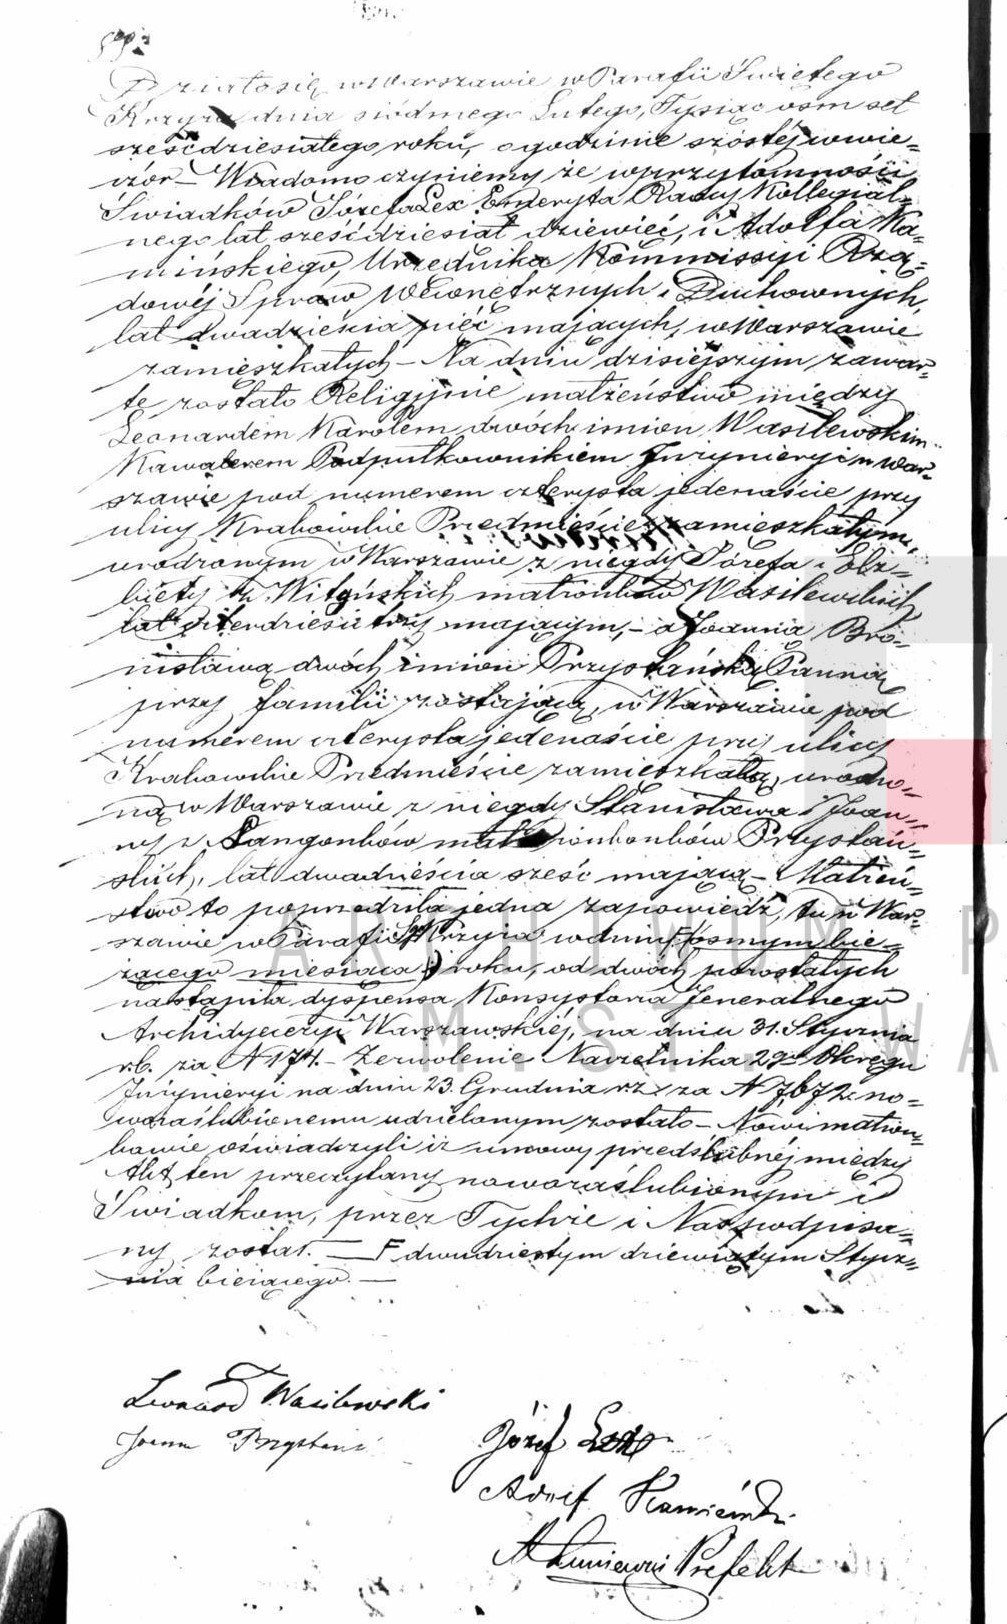 Działo się w Warszawie w Parafii Swiętego
Krzyża dnia siódmego Lutego, Tysiąc ośm set
sześćdziesiątego roku, o godzinie szóstéj wwie=
czór – Wiadomo czyniemy że wprzytomności
Świadków Józefa Lex Emeryta Radcy Kollegial=
nego lat sześćdziesiąt dziewięć, i Adolfa Ka=
mińskiego, Urzędnika Kommissyi Rzą=
dowéj Spraw Wewnętrznych i Duchownych,
lat dwadzieścia pięć mających, w Warszawie
zamieszkałych – Na dniu dzisiejszym zawar=
te zostało Religijnie małżeństwo między
Leonardem Karolem dwóch imion Wasilewskim
Kawalerem Podpułkownikiem Inżynieryi w War=
szawie pod numerem czterysta jedenaście przy
ulicy Krakowskie Przedmieście zamieszkałym,
urodzonym w Warszawie z niegdy Józefa i Elż=
biety z małżonków Wasilewskich
lat czterdzieści trzy mającym, – a Joanną Bro=
nisławą dwóch imion Przystańską Panną
przy familii zostającą, w Warszawie pod
numerem czterysta jedenaście przy ulicy
Krakowskie Przedmieście zamieszkałą, urodzo=
ną w Warszawie z niegdy Stanisława i Joan=
ny z małżonków Przystań=
skich, lat dwadzieścia sześć mającą – Małżeń=
stwo to poprzedziła jedna zapowiedź, tu w War=
szawie w Parafii Sgo Krzyża w dniu F(ósmym bie=
żącego miesiąca) roku, od dwóch pozostałych
nastąpiła dyspensa Konsystorza Jeneralnego
Archidyecezyi Warszawskiéj, na dniu 31. Stycznia
r.b. za N 174. – Zezwolenie Naczelnika 2go Okręgu
Inżynieryi na dniu 23. Grudnia r.z. za N 7,672 no=
wozaślubionemu udzielonym zostało – Nowi małżon=
kowie oświadczyli iż umowy przedślubnéj między
Akt ten przeczytany nowozaślubionym i
Świadkom, przez Tychże i Nas podpisa=
ny został. — F dwudziestym dziewiątym Stycz=
nia bieżącego. —
Leonard Wasilewski
Joanna Przystańs
Józef Lex
Adolf Kamiński
Prefekt